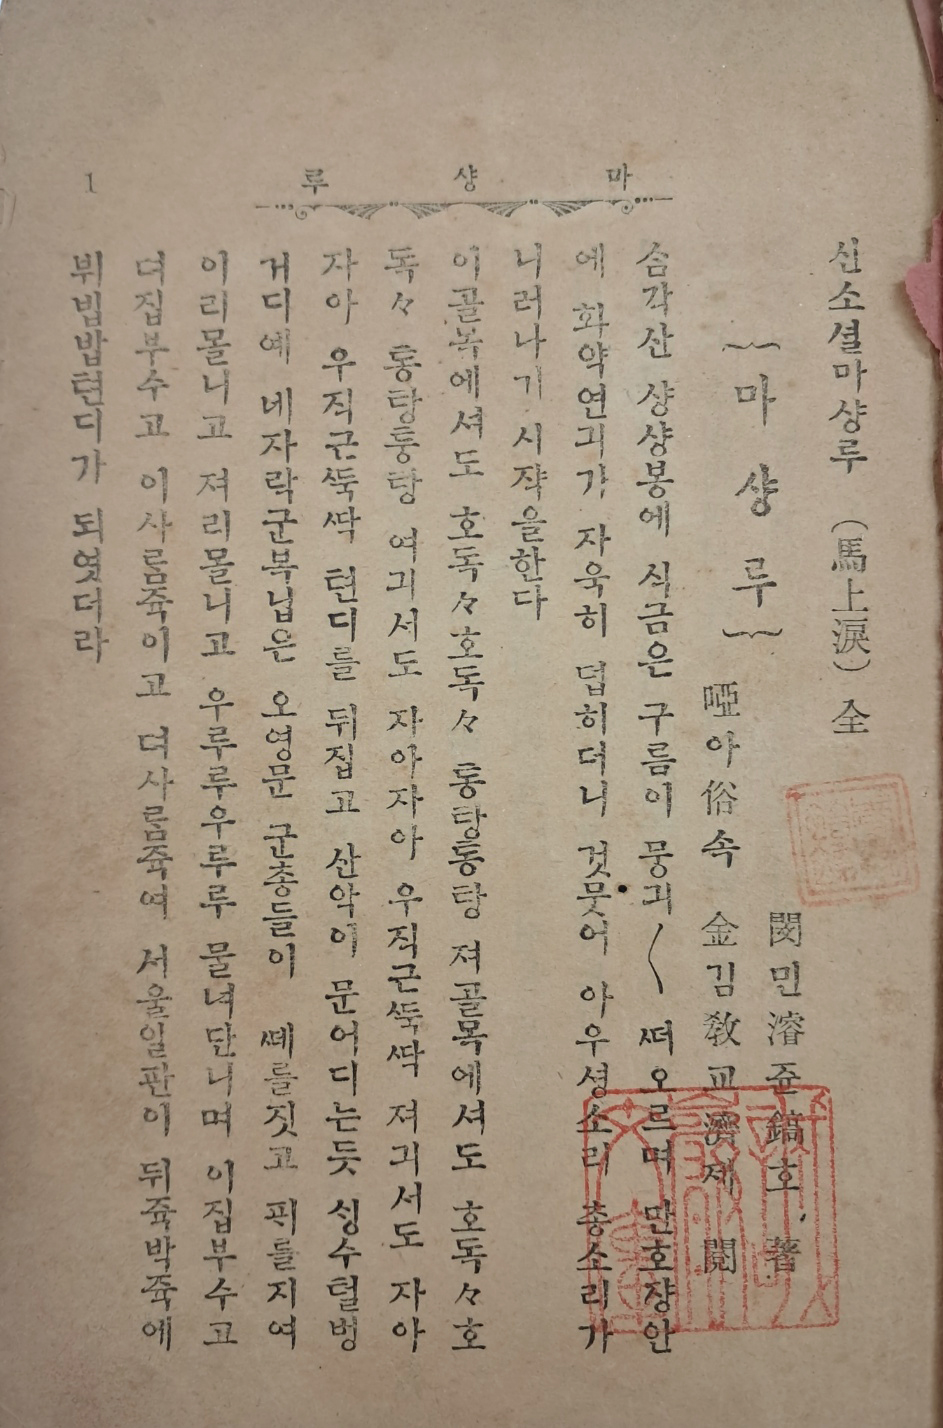 마 샹 루
1
신소셜마샹루 (馬上淚) 全
마 샹 루
閔민濬쥰鎬호 著
啞아俗속 金김敎교濟제 閱
솜각산 샹샹봉에 식금은 구름이 뭉긔〱 떠오르며 만호쟝안
에 화약연긔가 자욱히 덥히더니 것뭇어 아우셩소리 총소리가
니러나기 시쟉을한다
이골목에셔도 호독々호독々 통탕통탕 져골목에셔도 호독々호
독々 통탕통탕 여긔서도 자아자아 우직근뚝딱 져긔서도 자아
자아 우직근뚝딱 텬디를 뒤집고 산악이 문어디는듯 싱수털벙
거디예 네자락군복닙은 오영문 군총들이 떼를짓고 픠를지여
이리몰니고 져리몰니고 우루루우루루 물녀단니며 이집부수고
뎌집부수고 이사름쥭이고 뎌사름쥭여 서울일판이 뒤쥭박쥭에
뷔빔밥텬디가 되엿더라